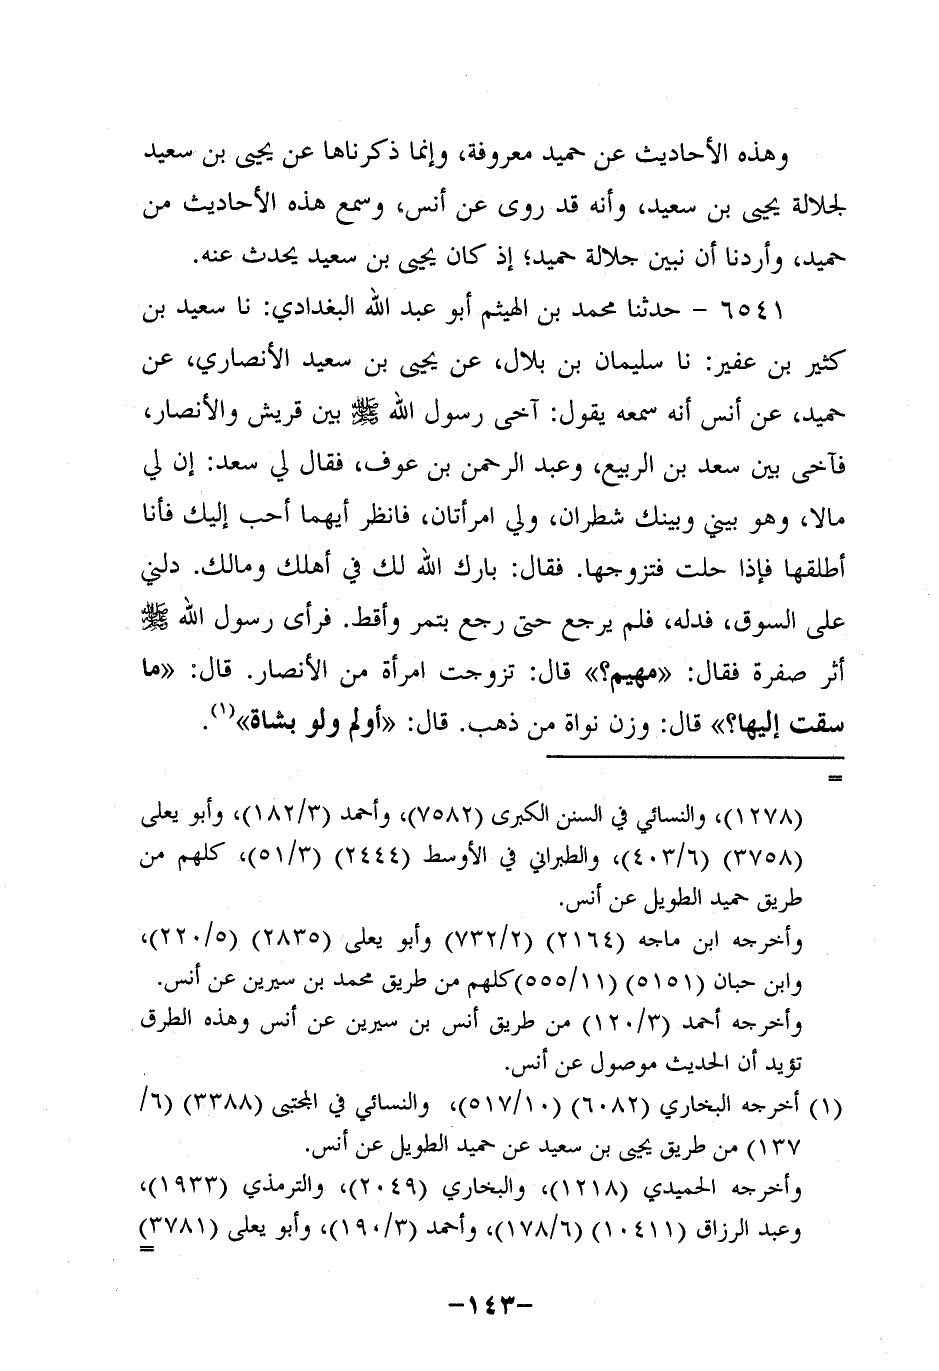 وهذه الأحاديث عن حميد معروفة، وإنما ذكرناها عن يحيى بن سعيد
لجلالة يحيى بن سعيد، وأنه قد روى عن أنس، وسمع هذه الأحاديث من
حميد، وأردنا أن نبين جلالة حميد؛ إذ كان يحيى بن سعيد يحدث عنه.
٦٥٤١ - حدثنا محمد بن الهيثم أبو عبد الله البغدادي: نا سعيد بن
كثير بن عفير: نا سليمان بن بلال، عن يحيى بن سعيد الأنصاري، عن
حميد، عن أنس أنه سمعه يقول: آخى رسول الله ﷺ بين قريش والأنصار،
فآخى بين سعد بن الربيع، وعبد الرحمن بن عوف، فقال لي سعد: إن لي
مالا، وهو بيني وبينك شطران، ولي امرأتان، فانظر أيهما أحب إليك فأنا
أطلقها فإذا حلت فتزوجها. فقال: بارك الله لك في أهلك ومالك. دلني
على السوق، فدله، فلم يرجع حتى رجع بتمر وأقط. فرأى رسول الله ﷺ
أثر صفرة فقال: «مهيم؟» قال: تزوجت امرأة من الأنصار. قال: «ما
سقت إليها؟» قال: وزن نواة من ذهب. قال: «أولم ولو بشاة»(١).
=
(١٢٧٨)، والنسائي في السنن الكبرى (٧٥٨٢)، وأحمد (١٨٢/٣)، وأبو يعلى
(٣٧٥٨) (٤٠٣/٦)، والطبراني في الأوسط (٢٤٤٤) (٥١/٣)، كلهم من
طريق حميد الطويل عن أنس.
وأخرجه ابن ماجه (٢١٦٤) (٧٣٢/٢) وأبو يعلى (٢٨٣٥) (٢٢٠/٥)،
وابن حبان (٥١٥١) (٥٥٥/١١)كلهم من طريق محمد بن سيرين عن أنس.
وأخرجه أحمد (١٢٠/٣) من طريق أنس بن سيرين عن أنس وهذه الطرق
تؤيد أن الحديث موصول عن أنس.
(١) أخرجه البخاري (٦٠٨٢) (٥١٧/١٠)، والنسائي في المجتبى (٣٣٨٨) (٦/
١٣٧) من طريق يحيى بن سعيد عن حميد الطويل عن أنس.
وأخرجه الحميدي (١٢١٨)، والبخاري (٢٠٤٩)، والترمذي (١٩٣٣)،
وعبد الرزاق (١٠٤١١) (١٧٨/٦)، وأحمد (١٩٠/٣)، وأبو يعلى (٣٧٨١)
=
-١٤٣-